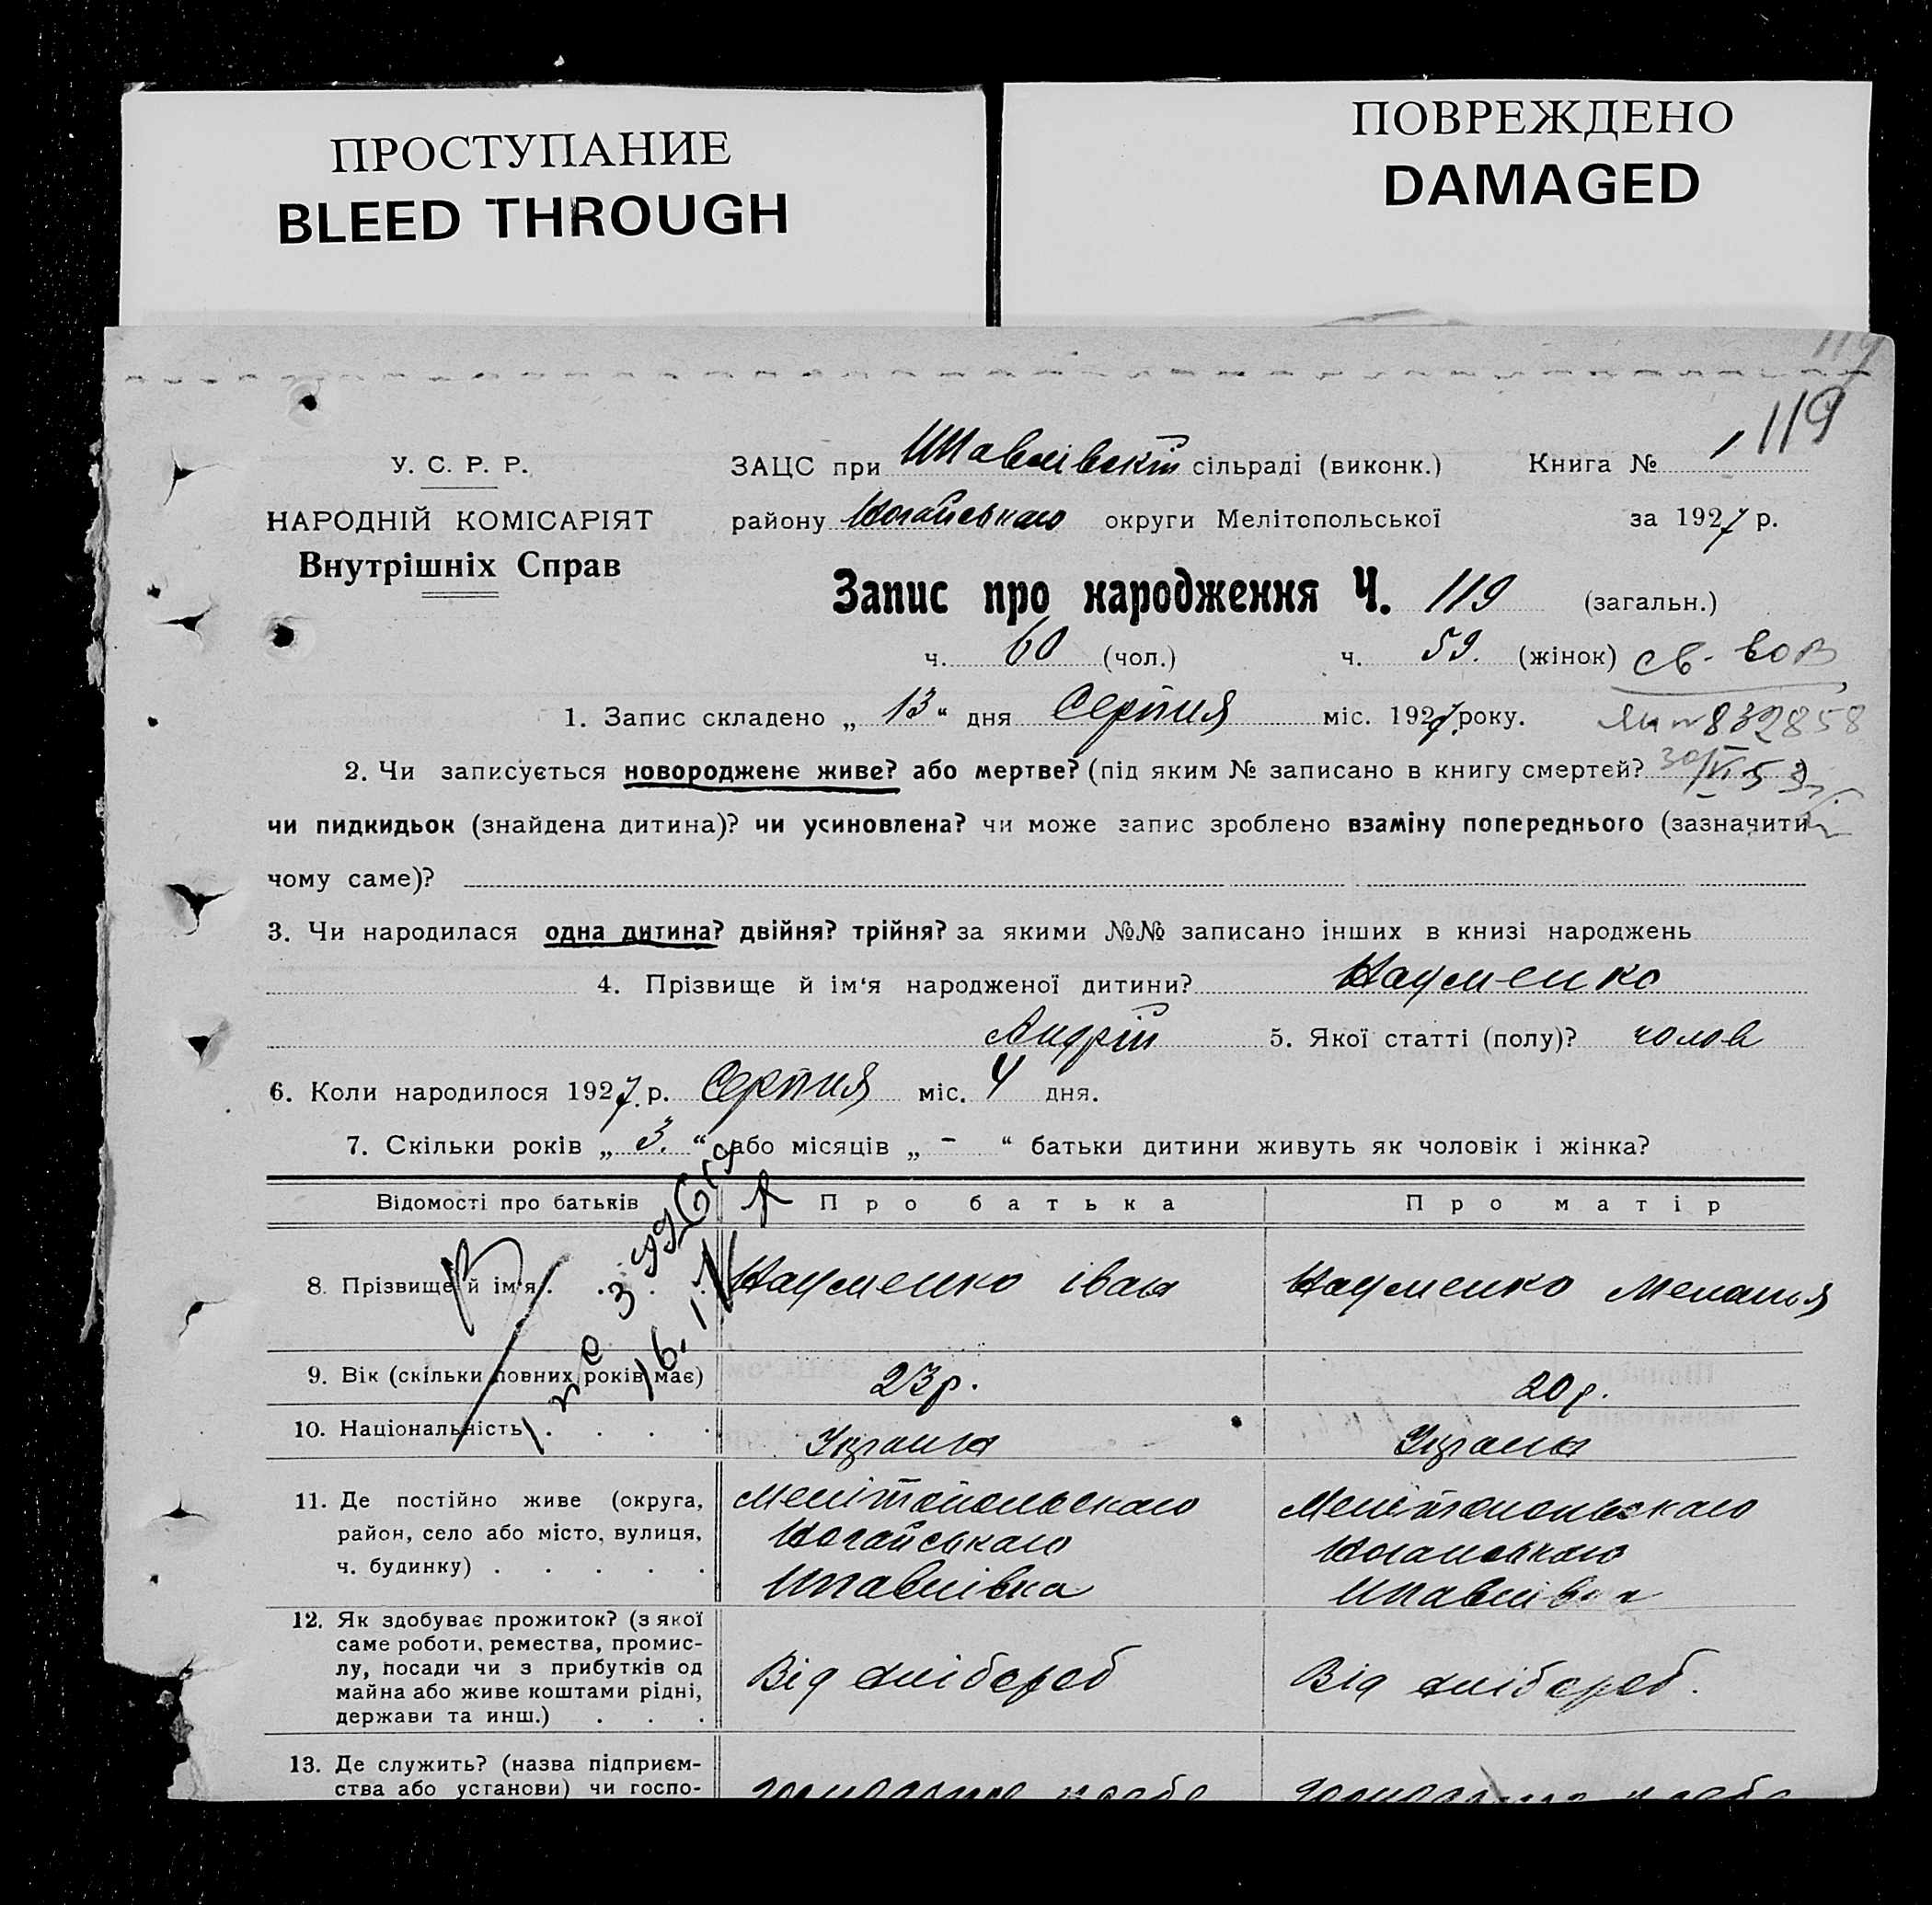 ПРОСТУПАНИЕ
BLEED THROUGH
ПОВРЕЖДЕНО
DAMAGED
119
119
У. С. Р. Р.
НАРОДНІЙ КОМІСАРІЯТ
Внутрішніх Справ
ЗАЦС при Шавлівській сільраді (виконк.) Книга № 1
району Ногайського округи Мелітопольської за 1927 р.
Запис про народження Ч. 119 (загальн.)
ч. 60 (чол.) ч. 59. (жінок)
832858
1. Запис складено „ 13 “ дня Серпня міс. 1927 року.
2. Чи записується новороджене живе? або мертве? (під яким № записано в книгу смертей?
чи пидкидьок (знайдена дитина)? чи усиновлена? чи може запис зроблено взаміну попереднього (зазначити
чому саме)?
3. Чи народилася одна дитина? двійня? трійня? за якими №№ записано інших в книзі народжень
4. Прізвище й ім‘я народженої дитини? Науменко
Андрій 5. Якої статті (полу)? чолов
6. Коли народилося 1927 р. Серпня міс. 4 дня.
7. Скільки років „ 3. “ або місяців „ - “ батьки дитини живуть як чоловік і жінка?
Відомості про батьків Про батька Про матір
8. Прізвище й ім‘я . . . . Науменко Іван Науменко Меланья
9. Вік (скільки повних років має) 23 р. 20 р.
10. Національність . . . . Украин Украин
11. Де постійно живе (округа,
район, село або місто, вулиця,
ч. будинку) . . . . .
Мелітопольскаго
Ногайськаго
Шавлівка
Мелітопольскаго
Ногайськаго
Шавлівка
12. Як здобуває прожиток? (з якої
саме роботи, ремества, промис-
лу, посади чи з прибутків од
майна або живе коштами рідні,
держави та инш.) . . .
Від хлібороб
Від хлібороб.
13. Де служить? (назва підприєм-
ства або установи) чи госпо-